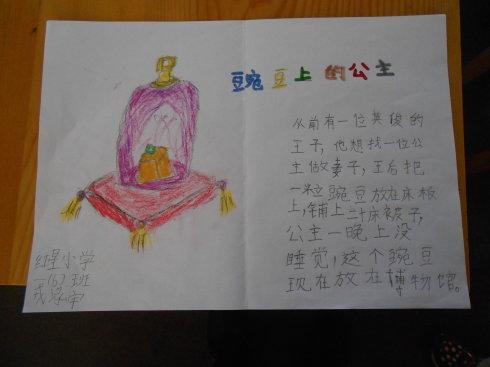 豌豆上的公主
从前有一位英俊的
王子，他想找一位公
主做妻子，王后把
一粒豌豆放在床板
上，铺上二十床被子，
公主一晚上没
睡觉，这个豌豆
现在放在博物馆。
红星小学
一(6)班